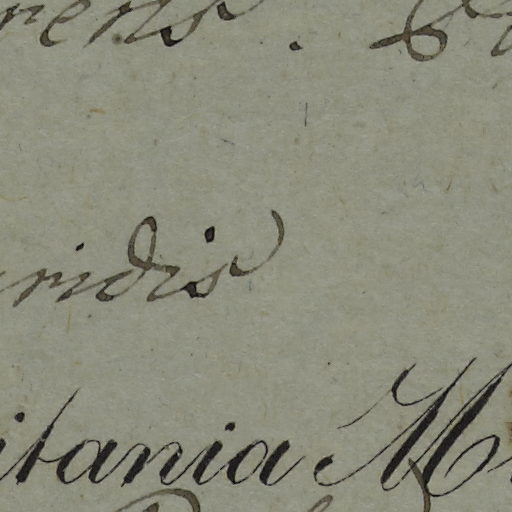 rens.
ridis
itania M